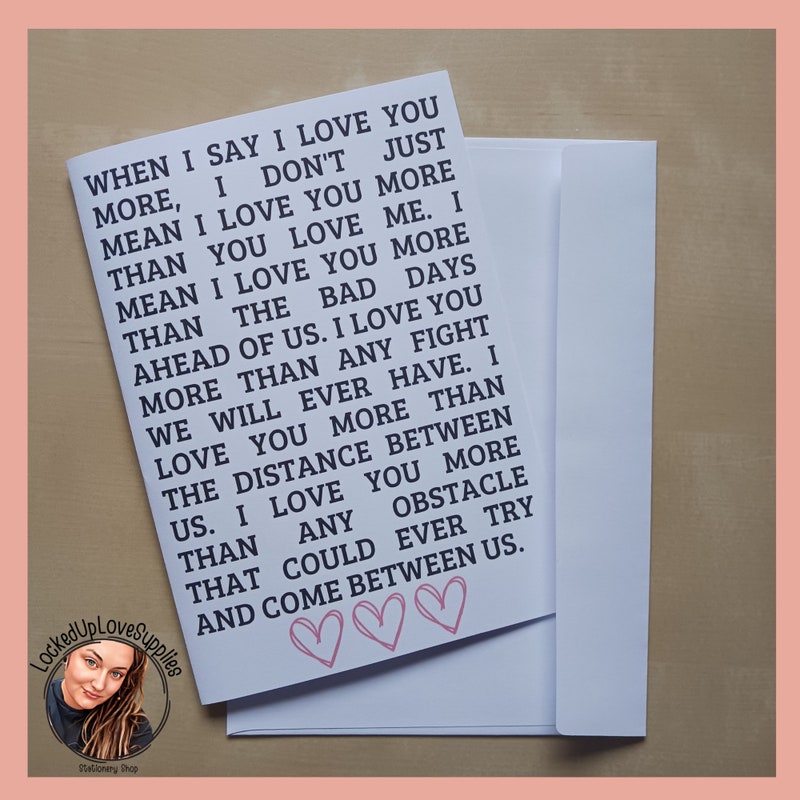 WHEN I SAY I LOVE YOU
MORE, I DON'T JUST
MEAN I LOVE YOU MORE
THAN YOU LOVE ME. I
MEAN I LOVE YOU MORE
THAN THE BAD DAYS
AHEAD OF US. I LOVE YOU
MORE THAN ANY FIGHT
WE WILL EVER HAVE. I
LOVE YOU MORE THAN
THE DISTANCE BETWEEN
US. I LOVE YOU MORE
THAN ANY OBSTACLE
THAT COULD EVER TRY
AND COME BETWEEN US.
LockedUpLoveSupplies
Stationery Shop